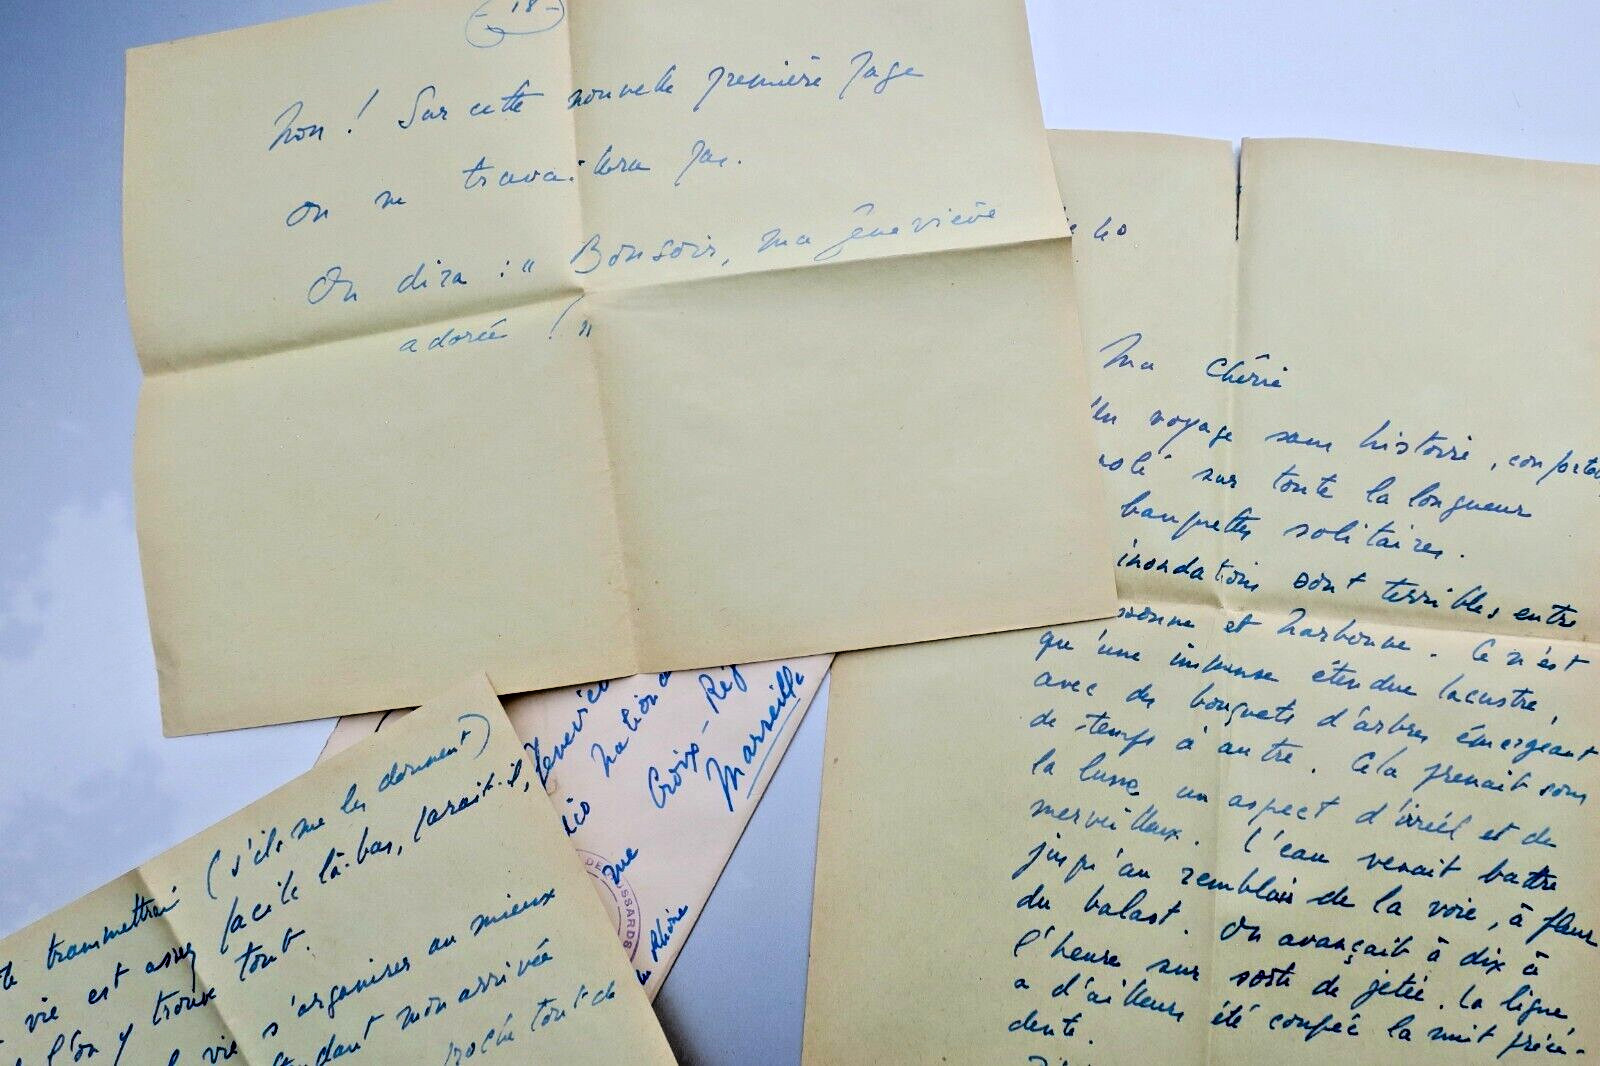 - 18 -
Non ! Sur cette nouvelle première page
on ne travaillera pas.
On dira : " Bonsoir, ma Geneviève
adorée ! "
40
Ma Chérie
Un voyage sans histoire, confortab
sur toute la longueur
banquettes solitaires.
inondations sont terribles entre
ssonne et Narbonne. Ce n'est
qu'une immense étendue lacustre,
avec des bouquets d'arbres émergeant
de temps à autre. Cela prenait sous
la lune un aspect d'irréel et de
merveilleux. L'eau venait battre
jusqu'au remblais de la voie, à fleur
du balast. On avançait à dix à
l'heure sur sorte de jetée. La ligne
a d'ailleurs été coupée la nuit précé-
dente.
Geneviève
nationa
Croix-Rég
Marseille
rue
du Rhône
DE HUSSARDS
te transmettrai (s'ils me les donnent)
vie est assez facile là-bas, paraît-il,
l'on y trouve tout.
vie s'organiser au mieux
dant mon arrivée
roche tout de